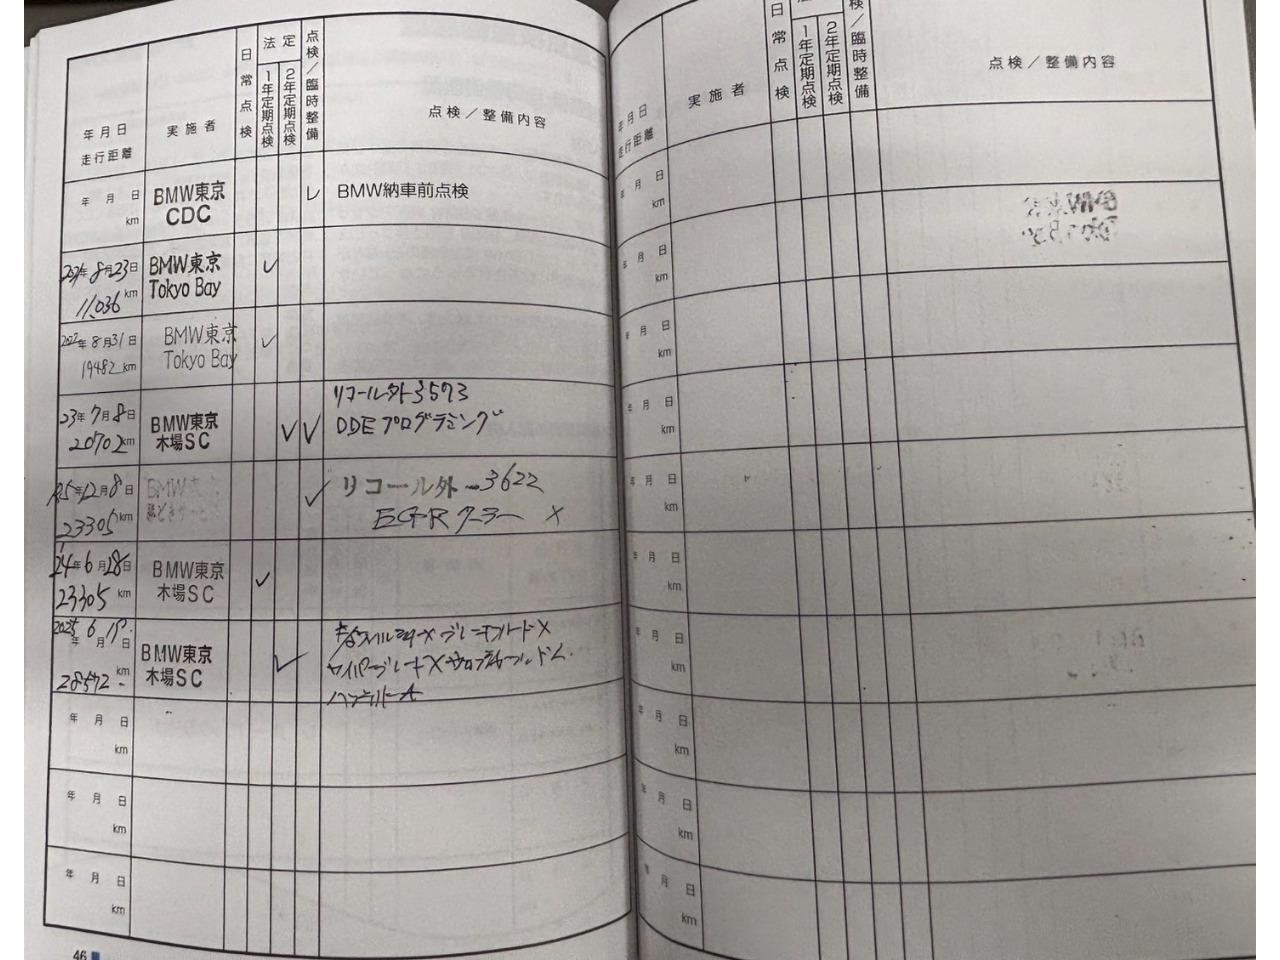 年月日
走行距離
実施者
日常点検
法定
1年定期点検
2年定期点検
点検/臨時整備
点検/整備内容
年 月 日
km
BMW東京
CDC
レ
BMW納車前点検
年8月23日
11,036 km
BMW東京
Tokyo Bay
✓
2022年8月31日
19482 km
BMW東京
Tokyo Bay
✓
23年7月8日
20702km
BMW東京
木場SC
✓ ✓
リコール外3573
DDEプログラミング
R5年12月8日
23305km
BMW東京
✓
リコール外 3622
EGRクーラー ×
24年6月28日
23305 km
BMW東京
木場SC
✓
2025年6月19日
28572 km
BMW東京
木場SC
✓
ブレーキフルード×
ワイパーブレード×
年 月 日
km
年 月 日
km
年 月 日
km
46
年月日
走行距離
実施者
日常点検
1年定期点検
2年定期点検
検/臨時整備
点検/整備内容
年 月 日
km
年 月 日
km
年 月 日
km
年 月 日
km
年 月 日
km
年 月 日
km
年 月 日
km
年 月 日
km
年 月 日
km
年 月 日
km